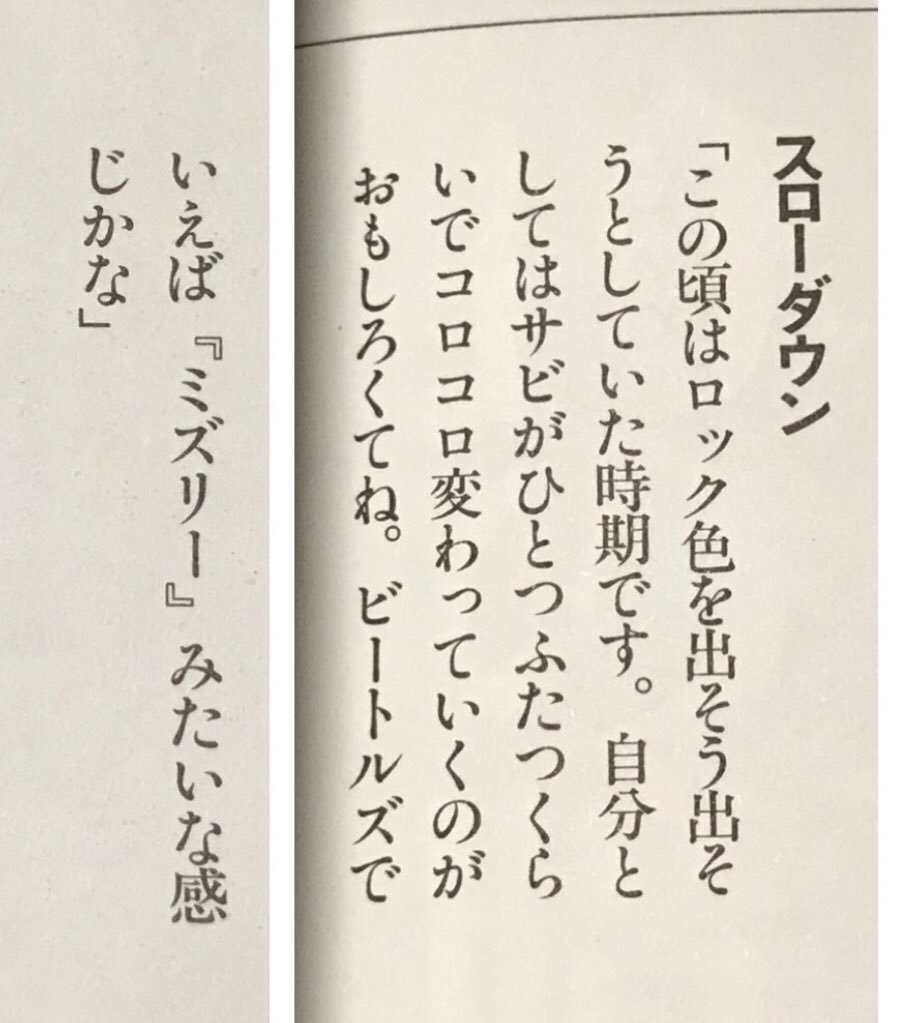 スローダウン
「この頃はロック色を出そう出そ
うとしていた時期です。自分と
してはサビがひとつふたつくら
いでコロコロ変わっていくのが
おもしろくてね。ビートルズで
いえば『ミズリー』みたいな感
じかな」